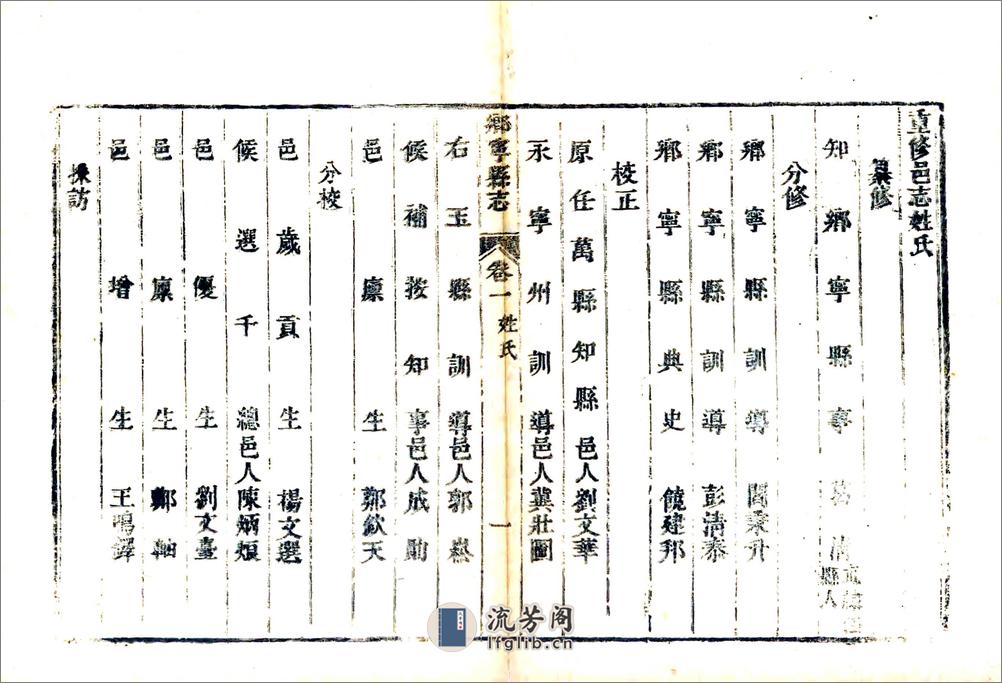 重修邑志姓氏
纂修
知鄉寧縣事葛清
縣人
分修
鄉寧縣訓導閻秉升
鄉寧縣訓導彭清泰
鄉寧縣典史饒建邦
校正
原任萬縣知縣邑人劉文華
永寧州訓導邑人冀壯圖
鄉寧縣志 卷一 姓氏 一
右玉縣訓導邑人郭
候補按知事邑人成勛
邑廩生鄭欽天
分校
邑歲貢生楊文選
候選千總邑人陳炳烺
邑優生劉文臺
邑廩生鄭軸
邑增生王鳴鐸
採訪
流芳阁
lfglib.cn